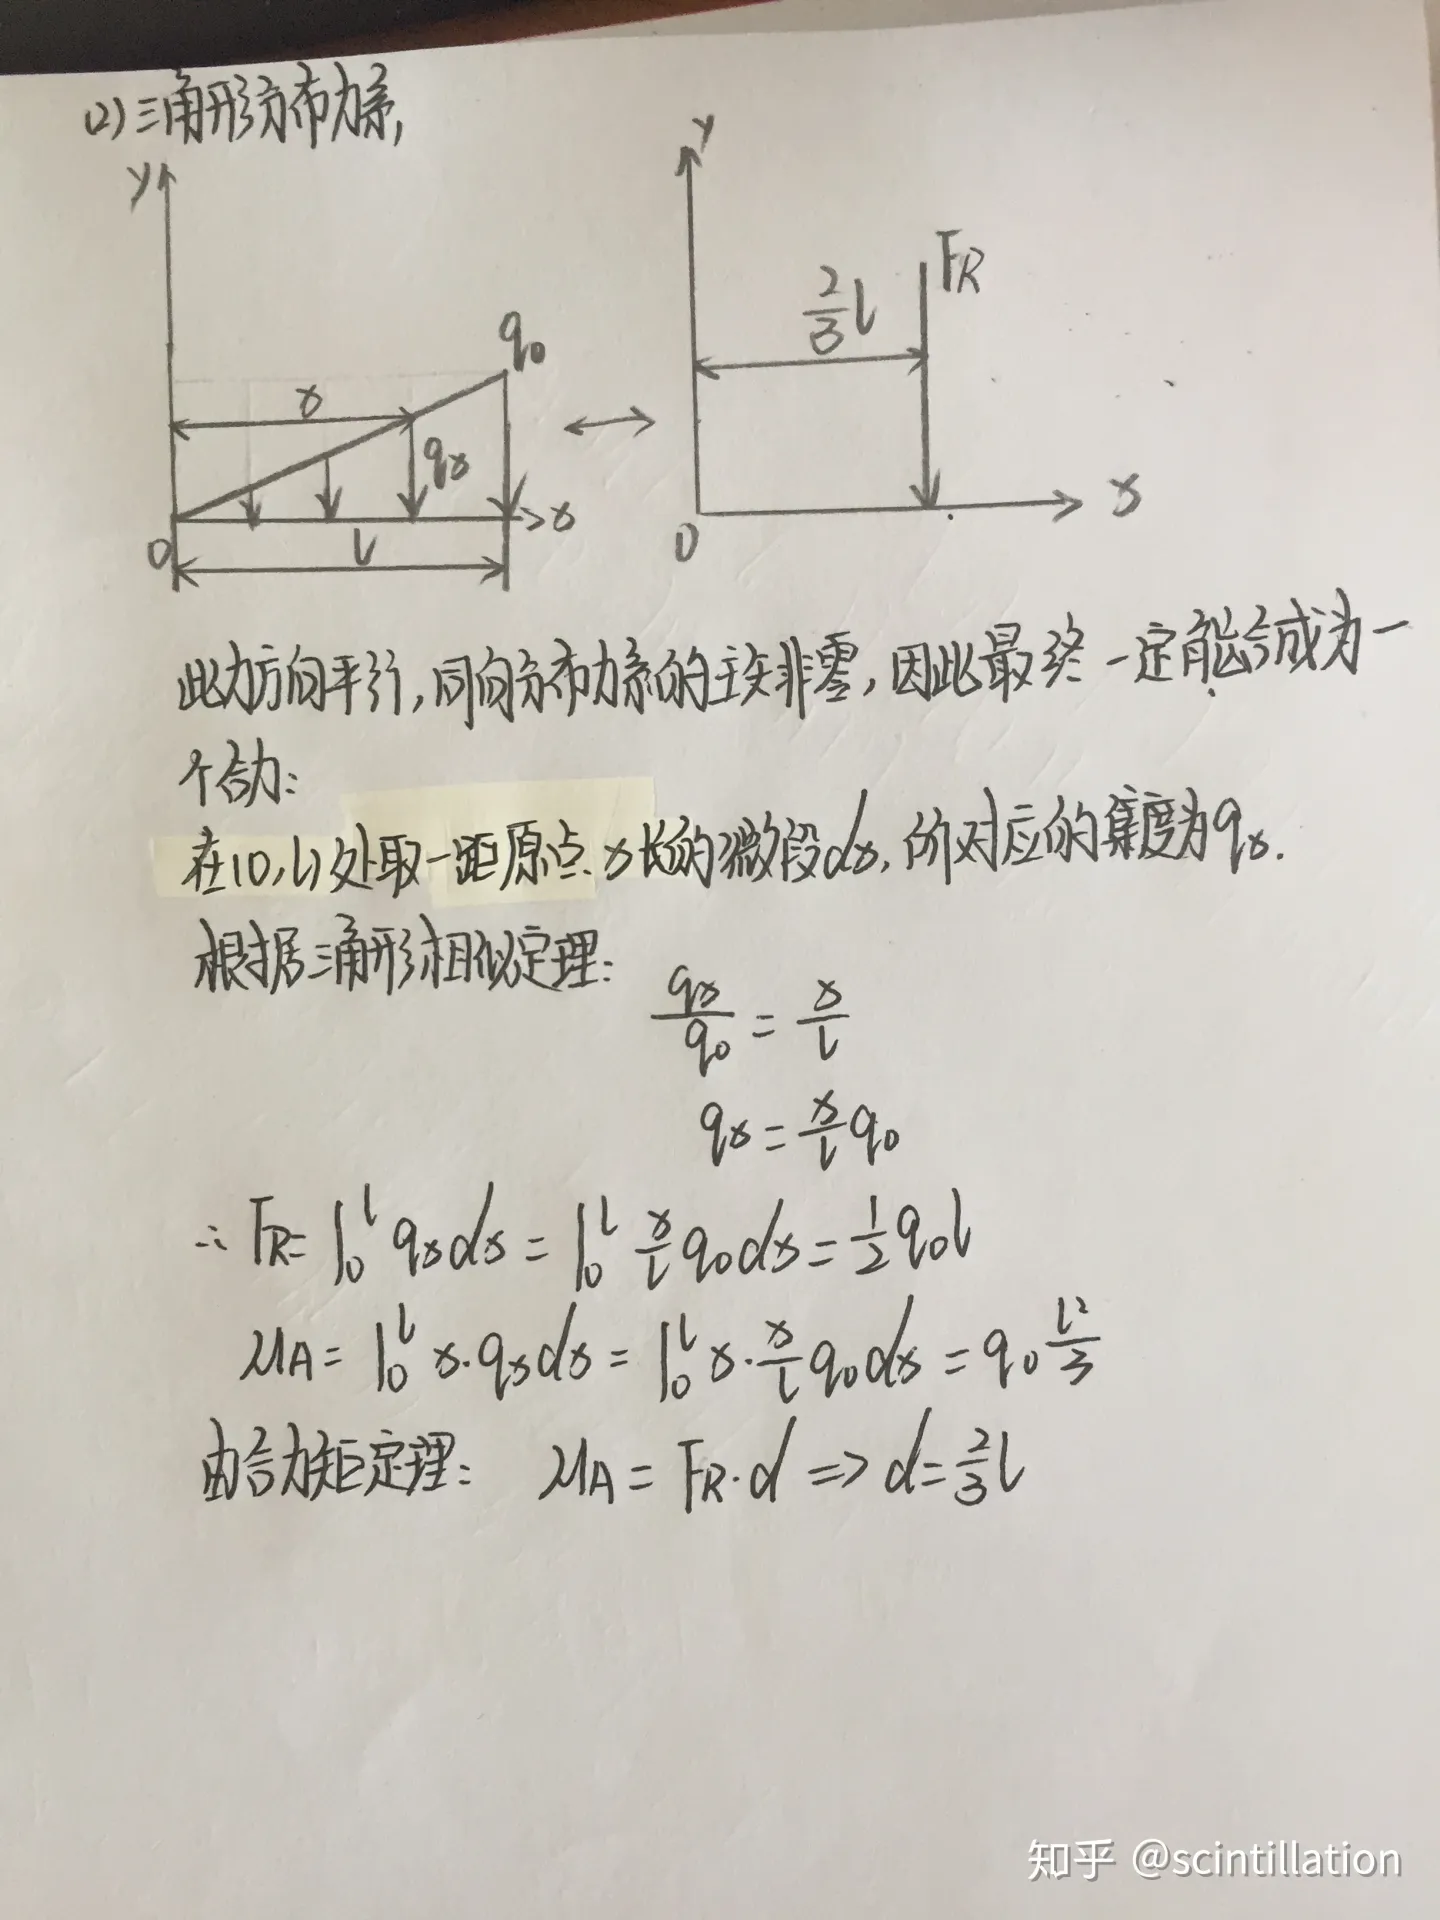 (2) 三角形分布力系,
y
y
F_R
2/3 l
q_0
x
q_x
x
x
O
l
O
此力方向平行,同向分布力系的主矢非零,因此最终一定能合成为一
个合力:
在(0,l)处取一距原点x长的微段dx,所对应的集度为q_x.
根据三角形相似定理:
q_x/q_0 = x/l
q_x = x/l q_0
∴ F_R = ∫_0^l q_x dx = ∫_0^l x/l q_0 dx = 1/2 q_0 l
M_A = ∫_0^l x·q_x dx = ∫_0^l x·x/l q_0 dx = q_0 l²/3
由合力矩定理: M_A = F_R·d => d = 2/3 l
知乎 @scintillation